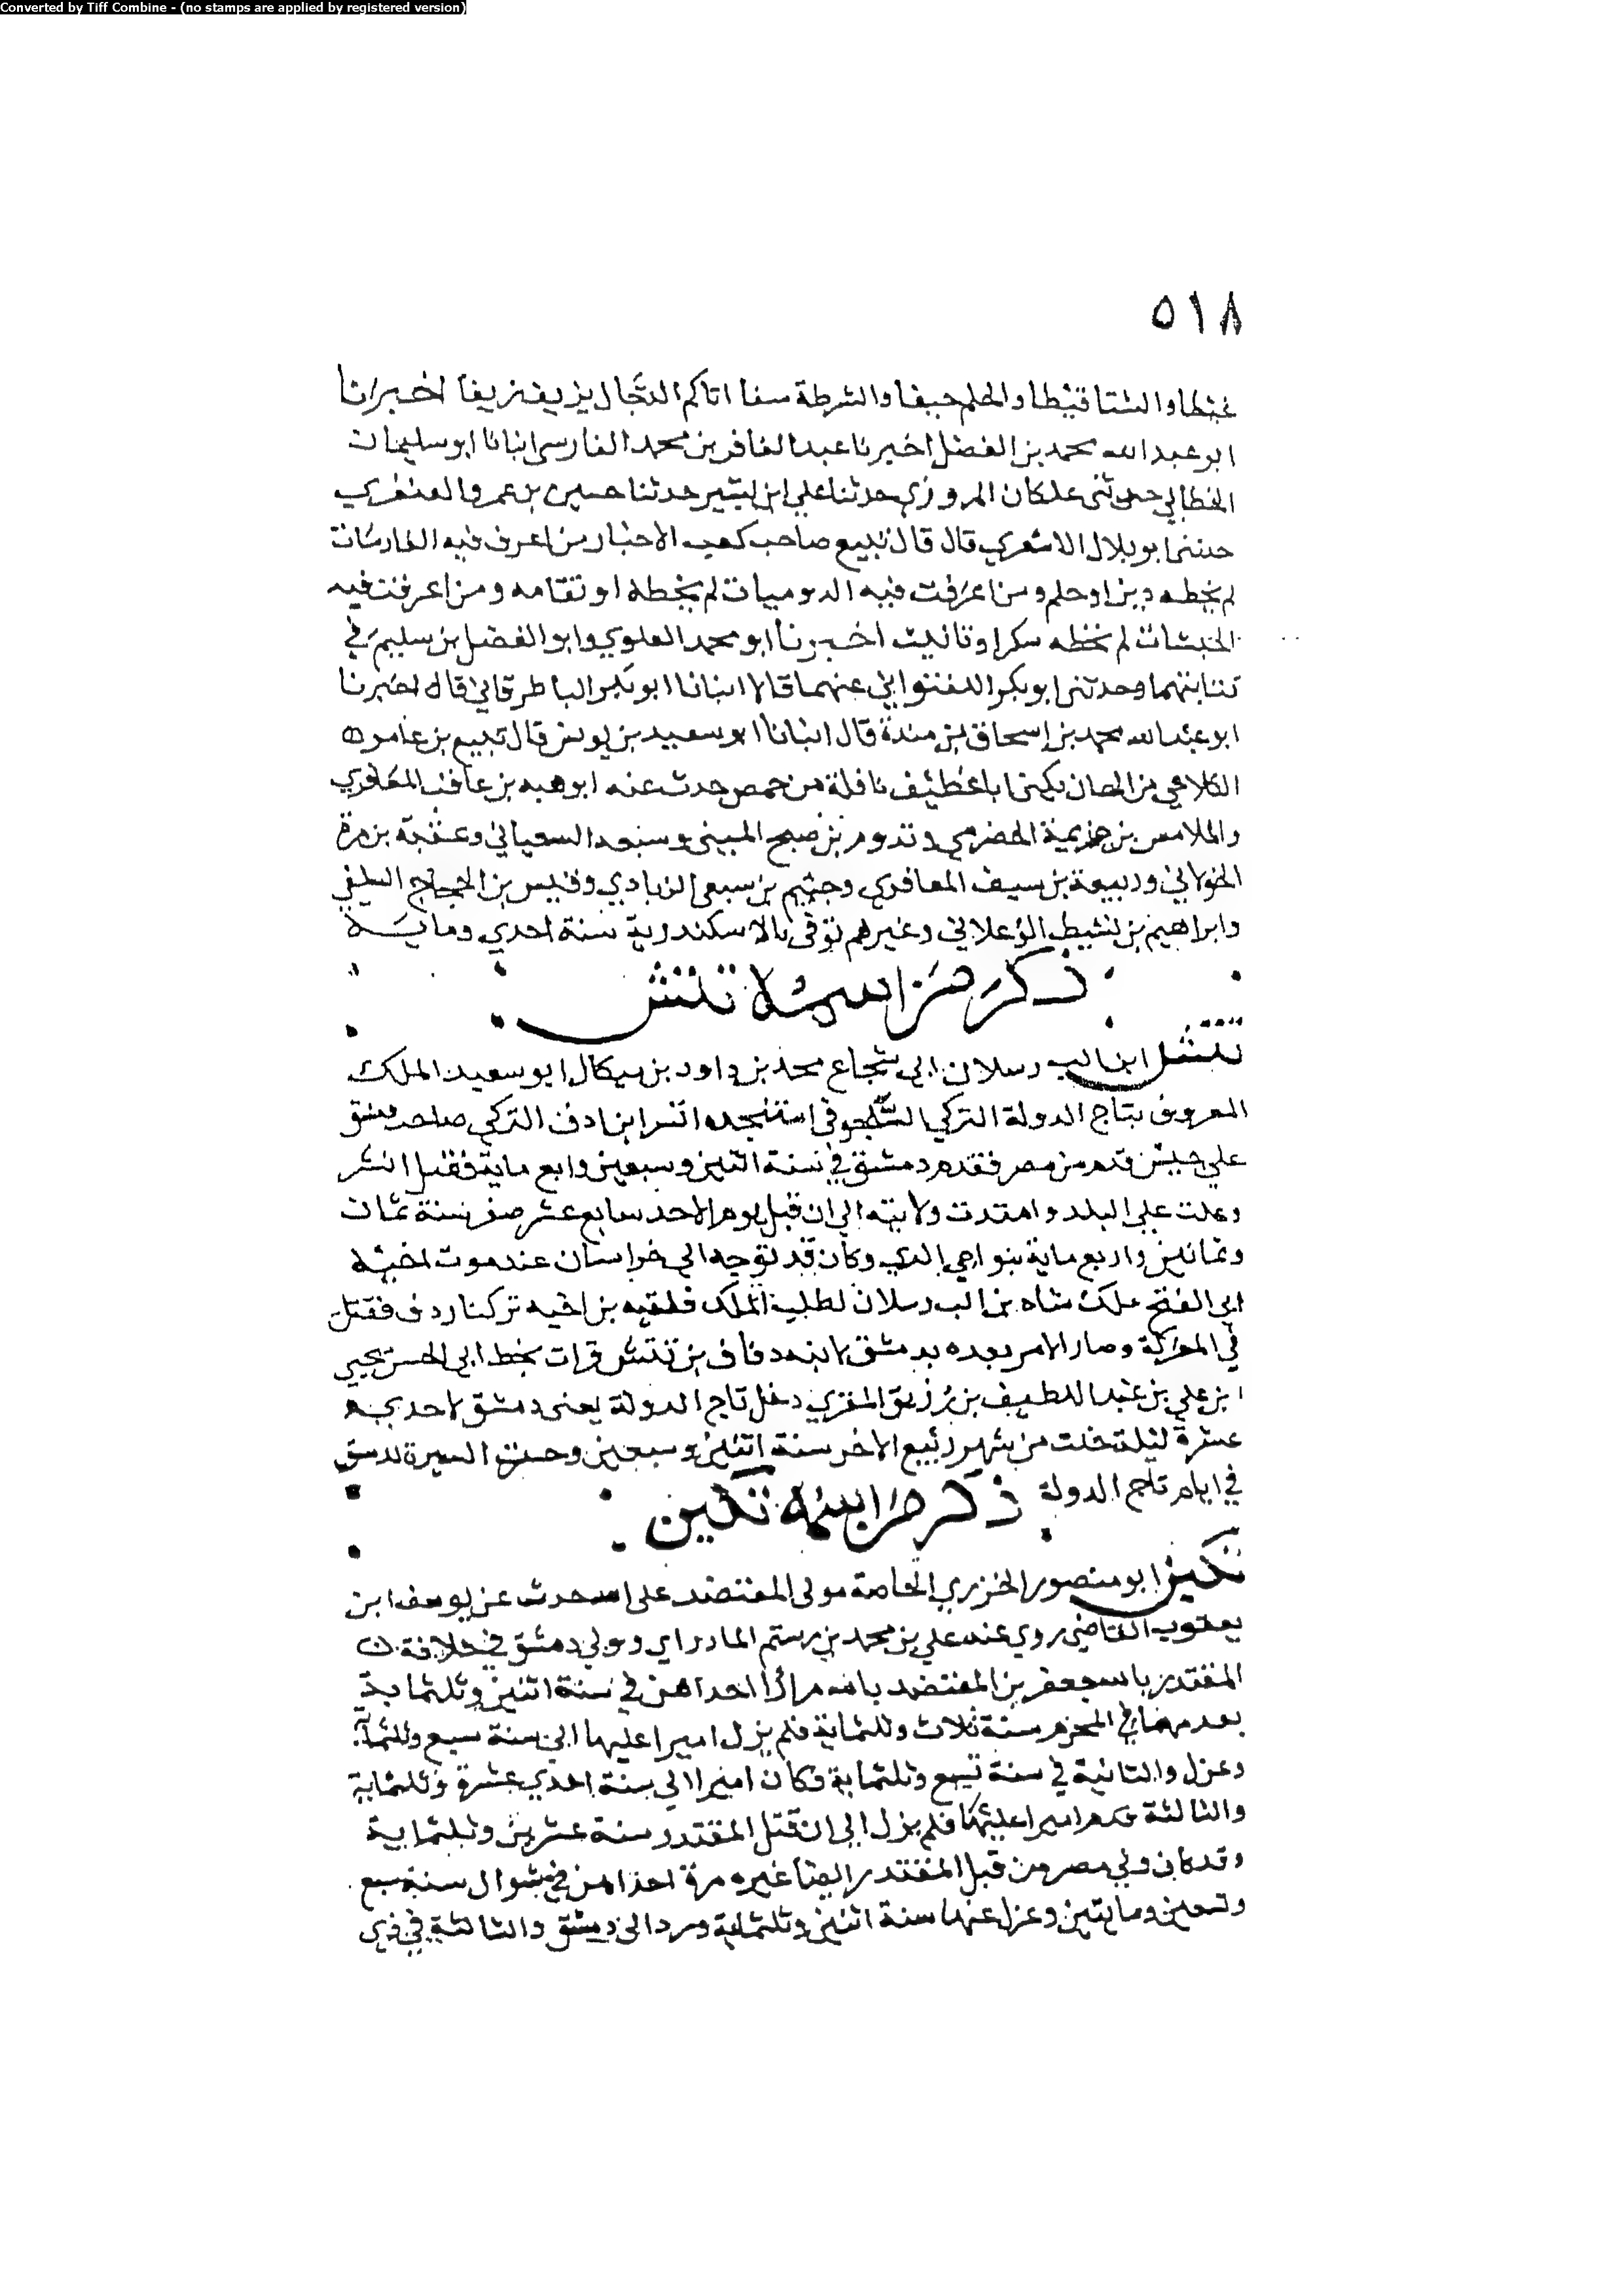 Converted by Tiff Combine - (no stamps are applied by registered version)
٥١٨
والشتا قيظا والحلم حيفا والشرطة سفا اتاكم الدجال يزيف زيفا اخبرنا
ابو عبد الله محمد بن الفضل اخبرنا عبد الغافر بن محمد الفارسي انبانا ابو سليمان
الخطابي حدثني علكان المروزي حدثنا علي ابن بشير حدثنا حسين بن عمرو العنقزي
حدثني ابو بلال الاشعري قال قال تبيع صاحب كعب الاحبار من اعرف فيه الفارسيات
لم يخطه دين او حلم ومن اعرقت فيه الروميات لم يخطه او تقامه ومن اعرقت فيه
الحبشات لم يخطه سكر او تانيث اخبرنا ابو محمد العلوي وابو الفضل بن سليم في
كتابيهما وحدثني ابو بكر اللفتواني عنهما قالا انبانا ابو بكر الباطرقاني قال اخبرنا
ابو عبد الله محمد بن إسحاق بن مندة قال انبانا ابو سعيد بن يونس قال تبيع بن عامر
الكلاعي من الهان يكنى ابا غطيف ناقلة من حمص حدث عنه ابو هبه بن عاقد المعافري
والملامس بن جزيمة الحضرمي وتدوم بن صبح وسعد وعقبة بن مرة
الخولاني وربيعة بن سيف المعافري وجثيم بن سبعى الزيادي وقيس بن الحجاج السلفي
وابراهيم بن نشيط الوعلاني وغيرهم توفي بالاسكندرية سنة احدي ومايه
ذكر من اسمه تتش
تتش ابن الب رسلان ابي شجاع محمد بن داود بن ميكال ابو سعيد الملك
المعروف بتاج الدولة التركي السلجوقي استنجده اتسز ابن اوق التركي صاحب دمشق
علي جيش قدم من مصر فقدم دمشق في سنة اثنين وسبعين وابع ماية فقتل اتسز
وغلب علي البلد وامتدت ولايته الي ان قتل يوم الاحد سابع عشر صفر سنة ثمان
وثمانين واربع ماية بنواحي الري وكان قد توجه الي خراسان عند موت اخيه
ابي الفتح ملك شاه بن الب رسلان لطلب الملك فلقيه بن اخيه تركيارق فقتل
في المعركة وصار الامر بعده بدمشق لابنه دقاق بن تتش قرات بخط ابي الحسن يحيي
ابن علي بن عبد اللطيف بن زريق المقري دخل تاج الدولة يعني دمشق لاحدي
عشرة ليلة خلت من شهر ربيع الاخر سنة اثنين وسبعين وحسنت السيرة
في ايام تاج الدولة ذكر من اسمه تكين
تكين ابو منصور الخزري الخاصة مولى المعتضد حدث عن يوسف ابن
يعقوب القاضي روي عنه علي بن محمد بن رستم المادراي وولي دمشق في خلافة
المقتدر جعفر بن المعتضد بالله مرارا احداهن في سنة اثنين وثلثماية
في المحرم سنة ثلاث وثلثماية فلم يزل اميرا عليها الي سنة سبع وثلثماية
وعزل والثانية في سنة تسع وثلثماية فكان اميرا الي سنة احدي عشرة وثلثماية
والثالثة قدم اميرا عليها فلم يزل الي ان قتل المقتدر سنة عشرين وثلثماية
وقد كان ولي مصر من قبل المقتدر ايضا غيره مرة احداهن في شوال سنة سبع
وتسعين ومايتين وعزل عنها سنة اثنين وثلثماية ورد الى دمشق والثالثة في ذي